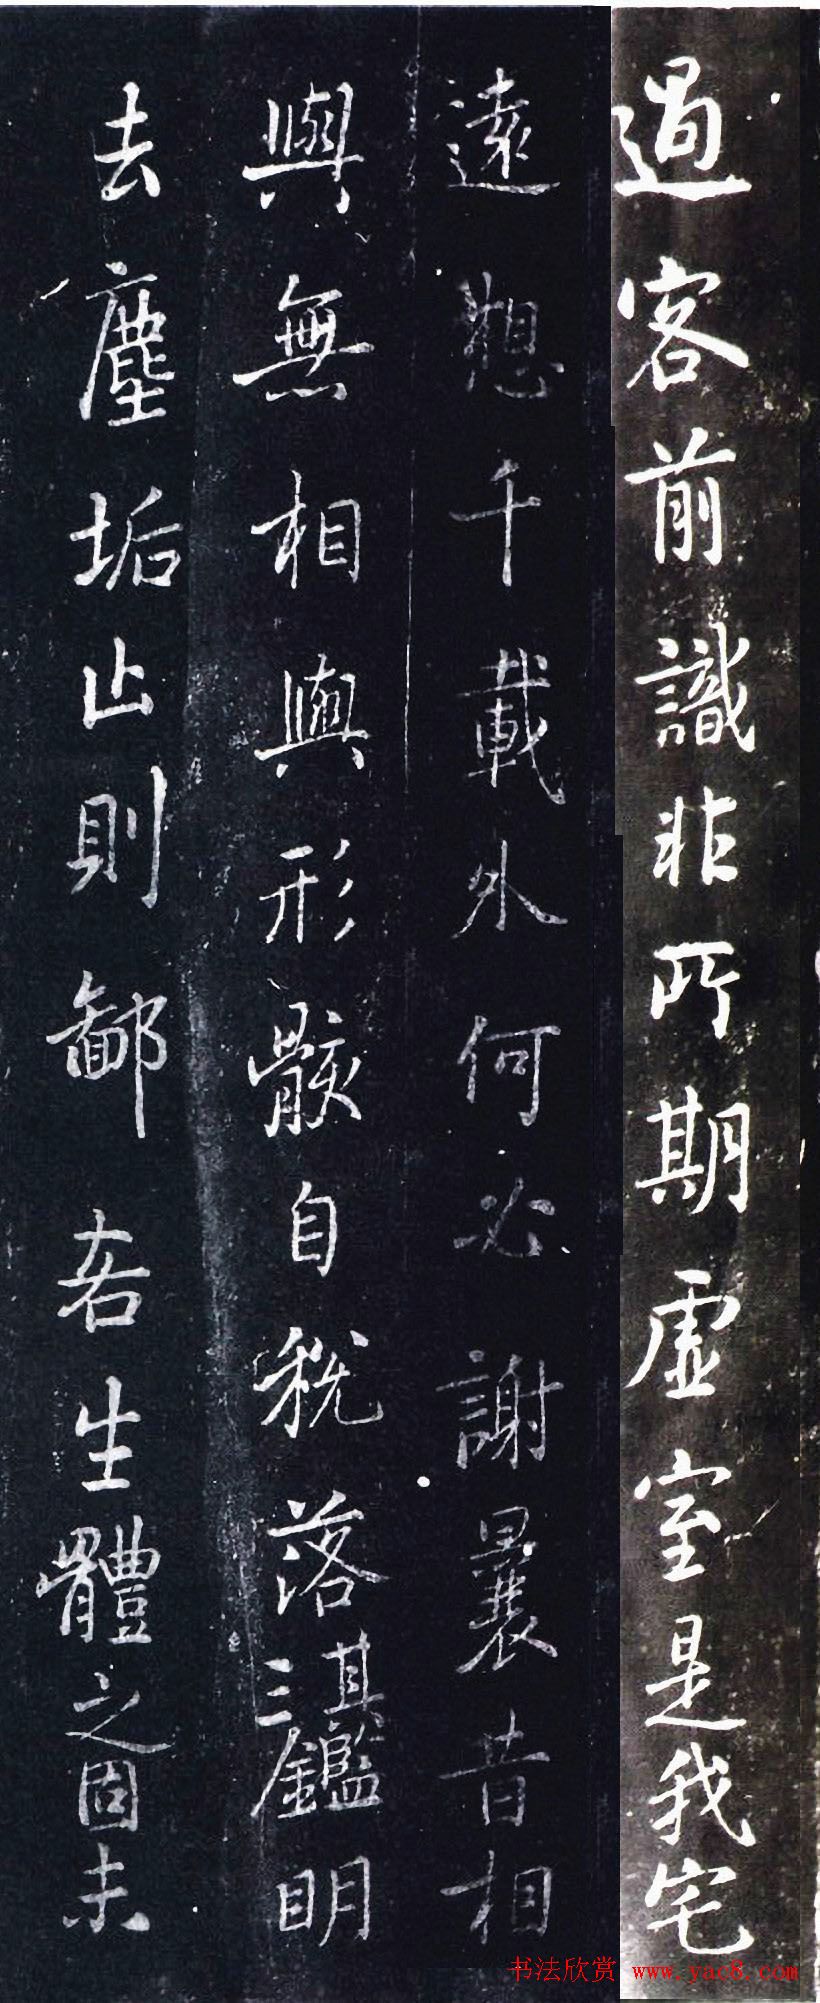 過客前識非所期虛室是我宅
遠想千載外何必謝曩昔相
與無相與形骸自稅落其三鑑明
去塵垢止則鄙吝生體之固未
书法欣赏 www.yac8.com